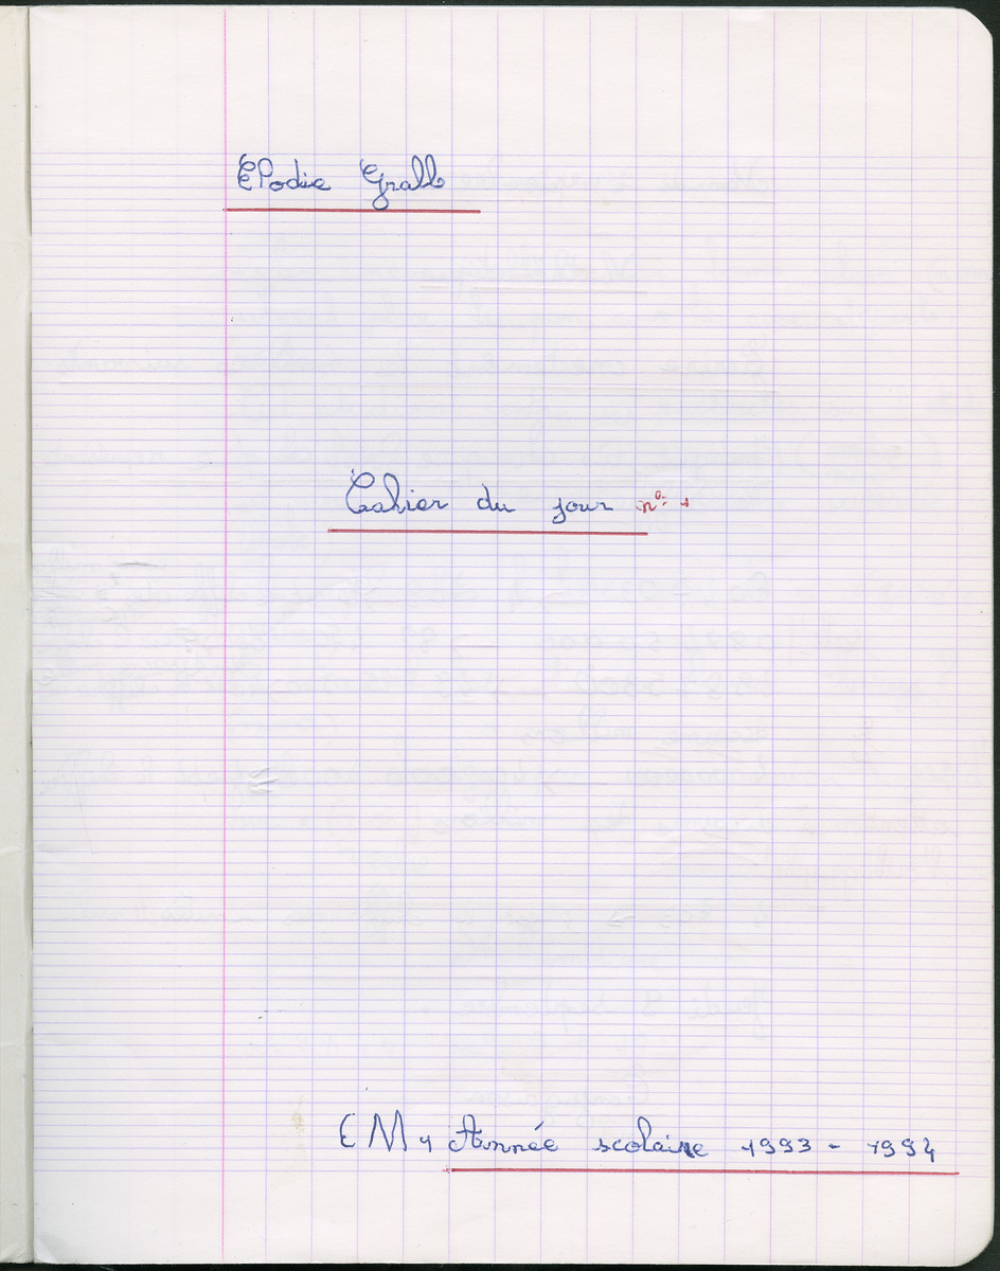 Elodie Grall
Cahier du jour n° 1
CM1 Année scolaire 1993 - 1994